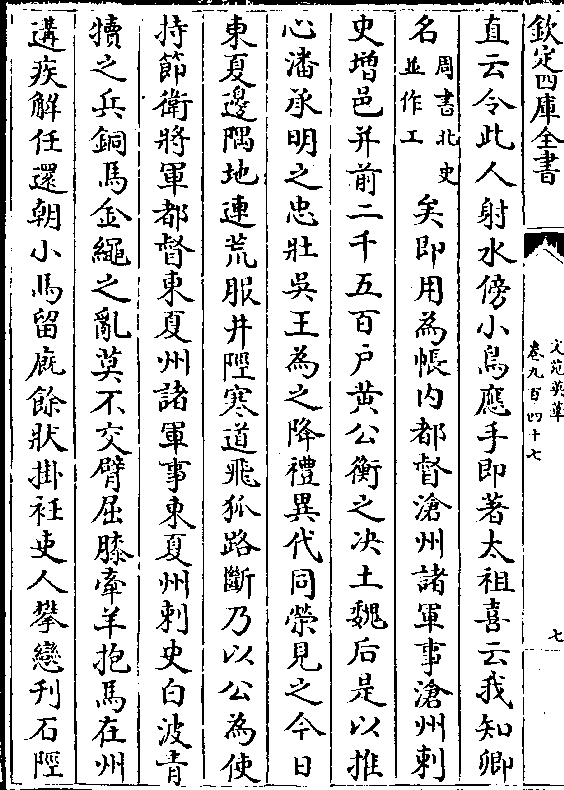 欽定四庫全書
文苑英華
卷九百四十七
七
直云令此人射水傍小鳥應手即著太祖喜云我知卿
名周書北史並作工矣即用為帳内都督滄州諸軍事滄州刺
史增邑并前二千五百户黄公衡之决土魏后是以推
心潘承明之忠壯吳王為之降禮異代同榮見之今日
東夏邊隅地連荒服井陘寒道飛狐路斷乃以公為使
持節衛將軍都督東夏州諸軍事東夏州刺史白波青
犢之兵銅馬金繩之亂莫不交臂屈膝牽羊抱馬在州
遘疾解任還朝小馬留廐餘狀掛衽吏人攀戀刋石陘